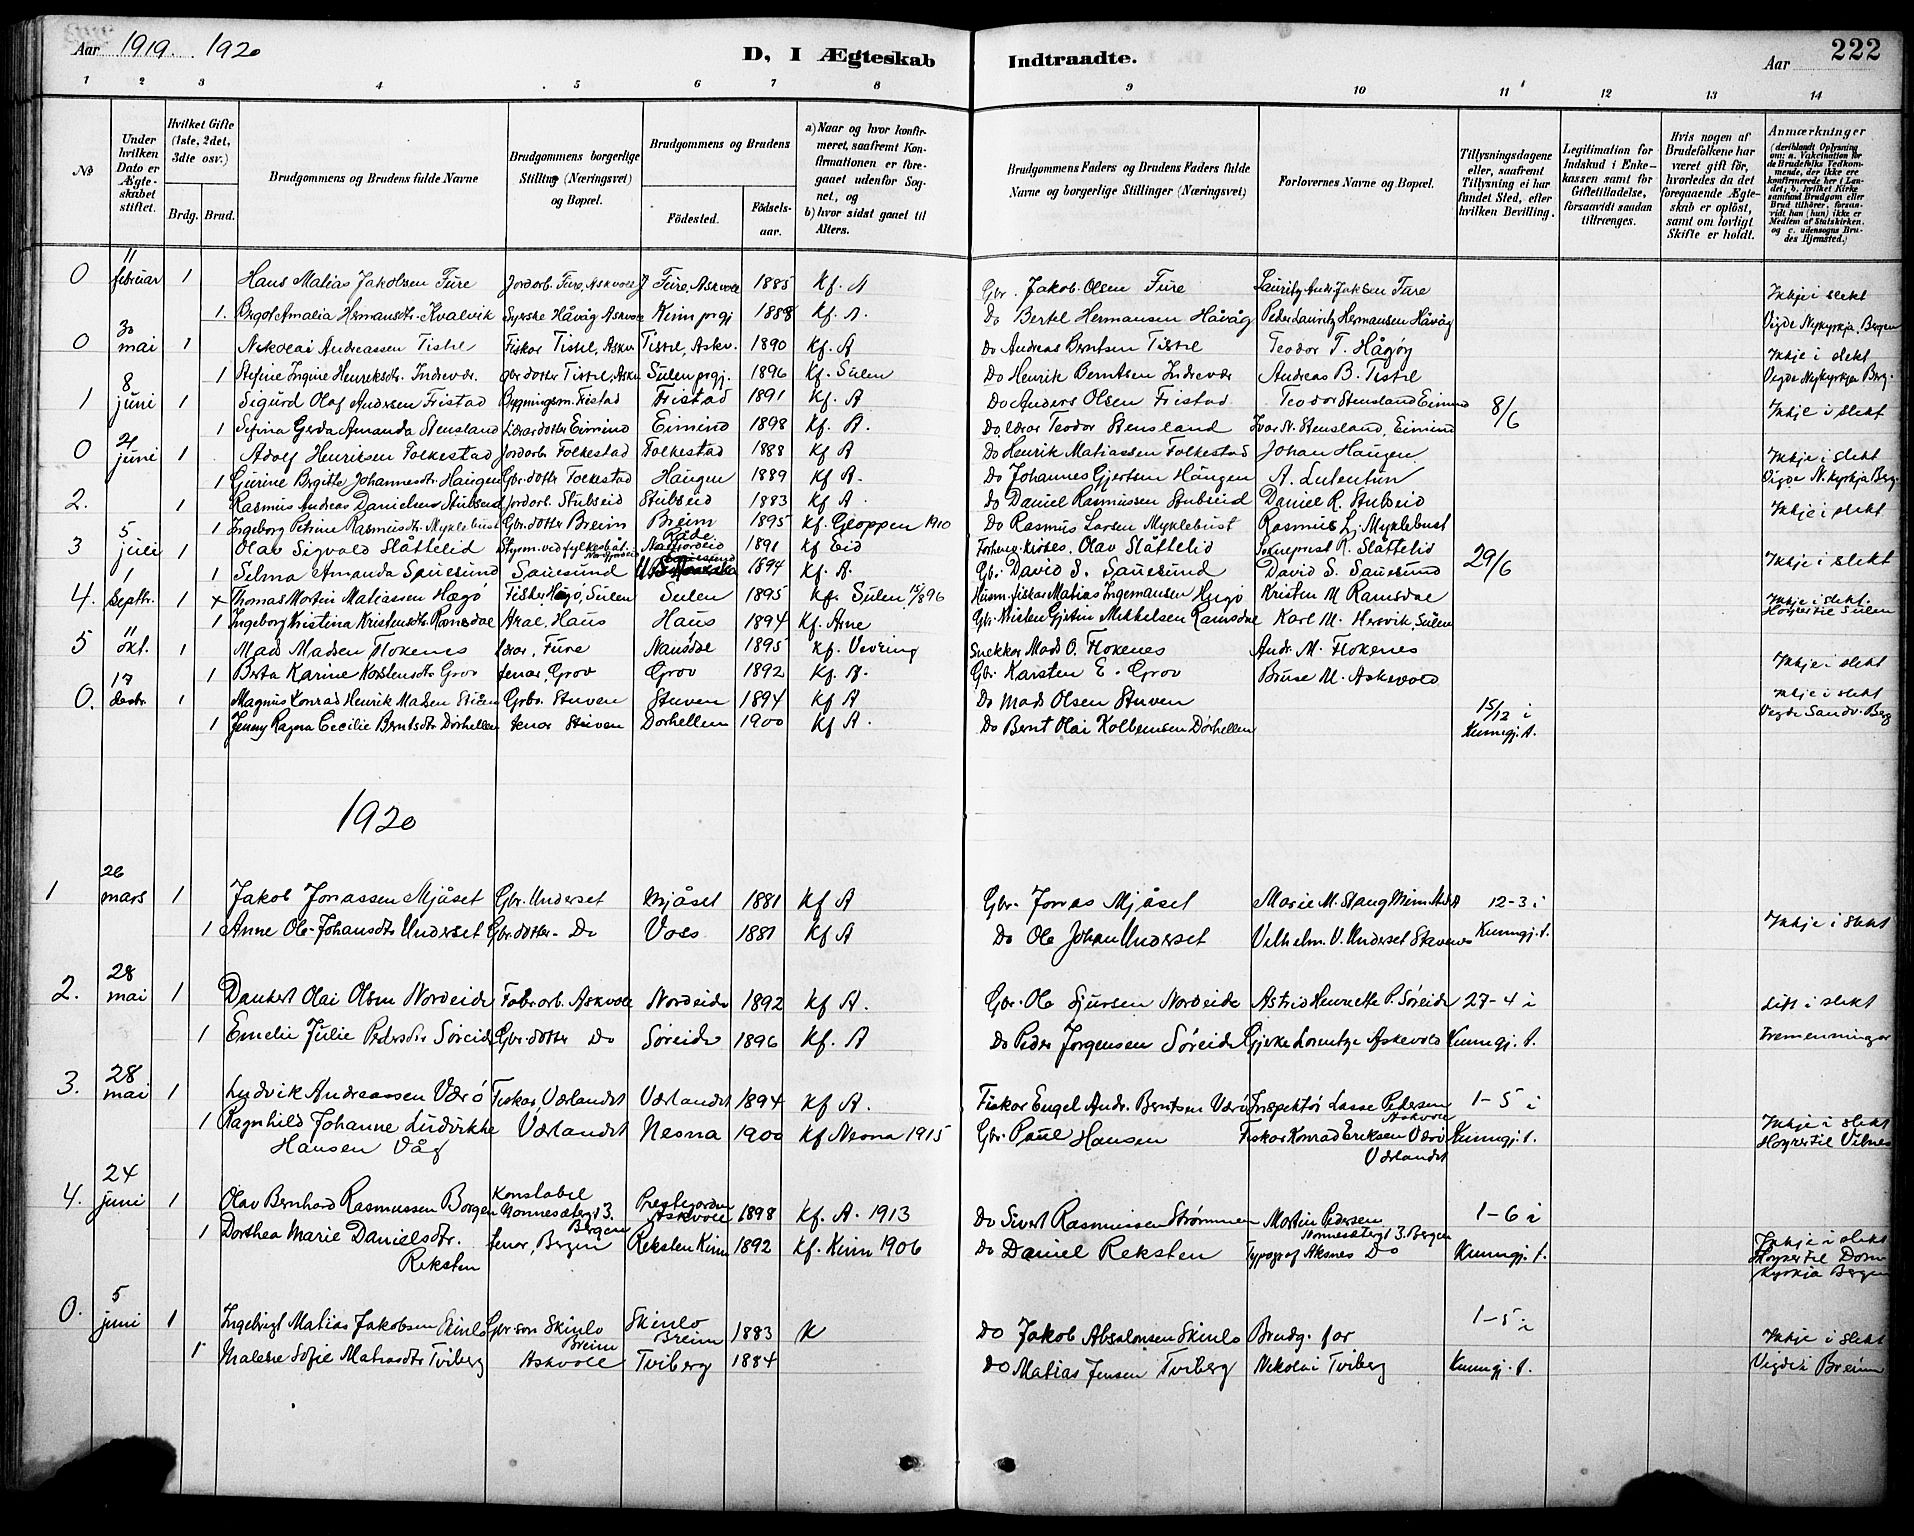 Aar 1919. 1920
D, I Ægteskab Indtraadte.
Aar 222
1 2 3 4 5 6 7 8 9 10 11 12 13 14
No
Under hvilken Dato er Ægteskabet stiftet.
Hvilket Gifte (1ste, 2det, 3die osv.)
Brdg. Brud.
Brudgommens og Brudens fulde Navne
Brudgommens borgerlige Stilling (Næringsvei) og Bopæl.
Brudgommens og Brudens
Fødested.
Fødselsaar.
a) Naar og hvor konfirmeret, saafremt Konfirmationen er foregaaet udenfor Sognet, og
b) hvor sidst gaaet til Alters.
Brudgommens Faders og Brudens Faders fulde Navne og borgerlige Stillinger (Næringsvei)
Forlovernes Navne og Bopæl.
Tillysningsdagene eller, saafremt Tillysning ei har fundet Sted, efter hvilken Bevilling.
Legitimation for Indskud i Enkekassen samt for Giftetilladelse, forsaavidt saadan tiltrænges.
Hvis nogen af Brudefolkene har været gift før, hvorledes da det foregaaende Ægteskab er opløst, samt om lovligt Skifte er holdt.
Anmærkninger (deriblandt Oplysning om: a. Vakcination for de Brudefolks Vedkommende, der ikke ere konfirmerede her i Landet; b. hvilket Kirkesamfund Brudgom eller Brud tilhører, forsaavidt han (hun) ikke er Medlem af Statskirken, og c. udensogns Brudes Hjemsted.)
0 11 februar 1 Hans Matias Jakobsen Fure Jordarb. Fure, Askvoll Fure, Askvoll 1885 Kf. A Gbr. Jakob Olsen Fure Lauritz Andr. Jakobsen Fure Inkje i slekt
1. Amalia Hermansdtr. Kvalvik Syerske Håvåg Askvoll Kinn prgj 1888 Kf. A. Do Bertel Hermansen Håvåg Peder Lauritz Hermansen Håvåg Vigde Nykyrkja, Bergen
0 30 mai 1 Nikolai Andreassen Tistel Fiskar Tistel, Askv. Tistel, Askv. 1890 Kf. A Do Andreas Berntsen Tistel Teodor T. Hågøy Inkje i slekt
1 Stefine Ingine Henriksdtr. Indrevær. Gbr. dotter Tistel, Askv Sulen prgj. 1896 Kf. Sulen Do Henrik Berntsen Indrevær Andreas B. Tistel Vigde Nykyrkja Berg.
1 8 juni 1 Sigurd Olaf Andersen Fristad Bygningsm. Fristad Fristad 1891 Kf. A Do Anders Olsen Fristad Teodor Stensland Eimind 8/6 Inkje i slekt
1 Sefina Gerda Amanda Stensland Lærardotter Eimind Eimind 1898 Kf. A. Do, lærar Teodor Stensland Ivar N. Stensland, Eimind
0 21 juni 1 Adolf Henriksen Folkestad Jordarb. Folkestad Folkestad 1888 Kf A Do Henrik Matiassen Folkestad Johan Haugen Inkje i slekt
1 Gurine Brgitte Johannesdtr. Haugen Gbr. dotter Folkestad Haugen 1889 Kf A. Do Johannes Gjertsen Haugen A. Lutentun Vigde N. kyrkja Berg.
2. 1 Rasmus Andreas Danielsen Stubseid Jordarb. Stubseid Stubseid 1883 Kf A. Do Daniel Rasmussen Stubseid Daniel R. Stubseid Inkje i slekt
1 Ingeborg Petrine Rasmusdtr. Myklebust Gbr. dotter Breim Breim 1895 Kf. Gloppen 1910 Do Rasmus Larsen Myklebust Rasmus L. Myklebust
3 5 juli 1 Olav Sigvald Slåttelid Styrm. ved fylkesbåt. Nordfjordeid 1891 Kf Eid Olav Slåttelid Sokneprest R. Slåttelid 29/6 Inkje i slekt
1 Selma Amanda Sauesund Sauesund Sauesund 1894 Kf. A. Gbr. David S. Sauesund David S. Sauesund
4. 1 septbr. 1 Thomas Mortin Matiassen Hægø Fisker, Hægø, Sulen Sulen 1895 Kf. Sulen 15/8 96 Husm. fiskar Matias Ingemansen Kristen M Ramsdal Inkje i slekt. Høyrer til Sulen
1 Ingeborg Kristina Kristensdtr. Ramsdal Haus Haus 1894 Kf. Arne Gbr. Kristen Gjertin Mikkelsen Ramsdal Karl M. Hersvik, Sulen
5 11 okt. 1 Mads Madsen Flokenes lærar, Fure Naustdal 1895 Kf. Vevring Snekkar Mads O. Flokenes Andr. M. Flokenes Inkje i slekt
1 Berta Karine Karstensdtr Grov tenar, Grov Grov 1892 Kf. A. Gbr. Karsten E. Grov Bruse M. Askevold
0. 17 desbr. 1 Magnus Konrad Henrik Madsen Stuven Grbr. Stuven Stuven 1894 Kf A Do Mads Olsen Stuven Inkje i slekt
1 Jenny Ragna Cecilie Berntsdtr Dørhellen tenar Stuven Dørhellen 1900 Kf A. Do Bernt Olai Kolbensen Dørhellen 15/12 i Kunngj. A. Vigde Sandv. Berg
1920
1 26 mars 1 Jakob Jonassen Mjåset Gbr. Underset Mjåset 1881 Kf A Gbr. Jonas Mjåset Marie M. Stang 12-3 i
1 Anne Ole-Johansdtr Underset Gbr. dotter Do Voes 1881 Kf A Do Ole Johan Underset Vilhelm V. Underset Stavenes Kunngj. A. Inkje i slekt
2. 28 mai 1 Dankert Olai Olsen Nordeide Fabr. arb. Askvoll Nordeide 1892 Kf A. Gbr. Ole Sjursen Nordeide Astrid Henriette P. Søreide 27-4 i Litt i slekt
1 Emelie Julie Pedersdtr Søreide Gbr. dotter Do Søreide 1896 Kf. A Do Peder Jørgensen Søreide Gjerke Lorentze Askevold Kunngj. A. tremenningar
3. 28 mai 1 Ludvik Andreassen Værø Fiskar, Værlandet Værlandet 1894 Kf A. Fiskar Engel Andr. Berntsen Værø Inspektør Lasse Pedersen Askvoll 1-5 i
1 Ragnhild Johanne Ludvikke Hansen Våg Værlandet Nesna 1900 Kf Nesna 1915 Gbr. Paul Hansen Fiskar Konrad Eriksen Værø Værlandet Kunngj. A. Inkje i slekt Høyrer til Vilnes
4. 24 juni 1 Olav Bernhard Rasmussen Borgen Konstabel Nonnesætergt 3. Bergen Prestejorden Askvoll 1898 Kf. A. 1913 Do Sivert Rasmussen Strømmen Mortin Pedersen Nonnesætergt 3. Bergen 1-6 i
1 Dorthea Marie Danielsdtr. Reksten tenar, Bergen Reksten Kinn 1892 Kf. Kinn 1906 Do Daniel Reksten Typograf Aksnes Do Kunngj. A. Inkje i slekt Høyrer til Domkyrkja Bergen
0. 5 juni 1 Ingebrigt Matias Jakobsen Skinlo Gbr son Skinlo Breim Skinlo Breim 1883 K Do Jakob Absalonsen Skinlo Brudg. far 1-5 i Inkje i slekt
1 Malene Sofie Matiasdtr Tviberg Askvoll Tviberg 1884 Do Matias Jensen Tviberg Nikolai Tviberg Kunngj. A. Vigde i Breim